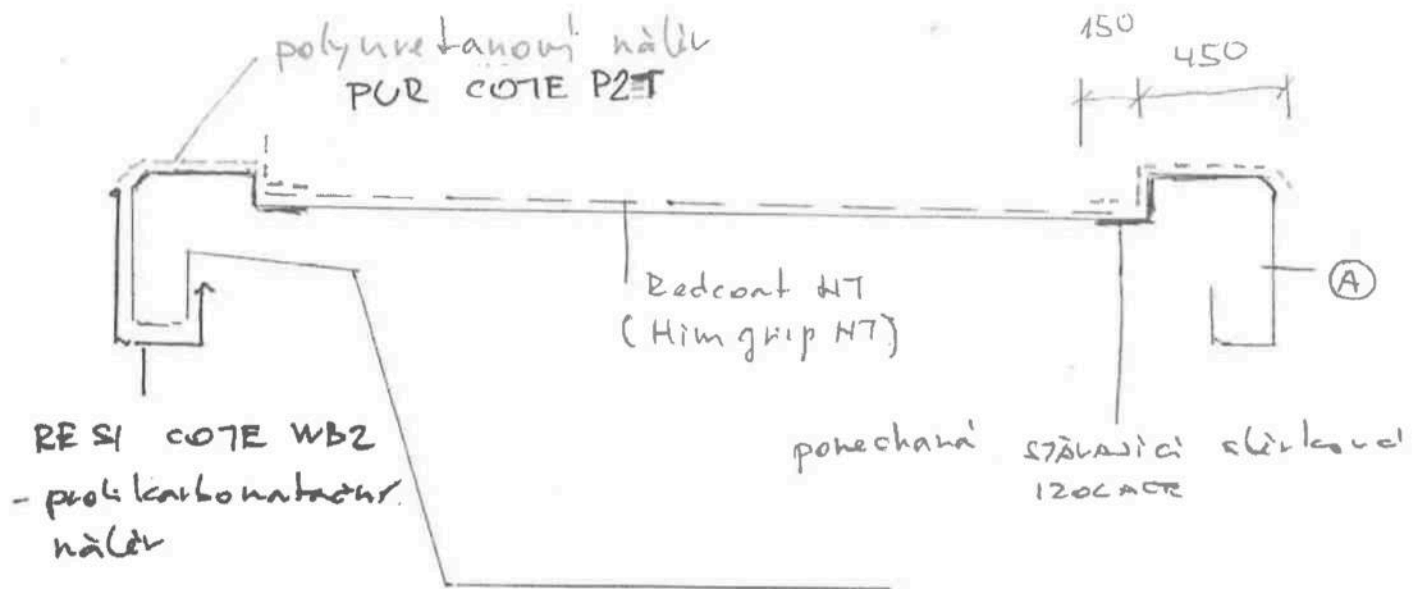 polyuretanový nátěr
PUR COTE P2T
150
450
A
Redcoat HT
(Himgrip HT)
RESI COTE WB2
- protikarbonatační
nátěr
ponechaná STÁVAJÍCÍ stěrková
IZOLACE